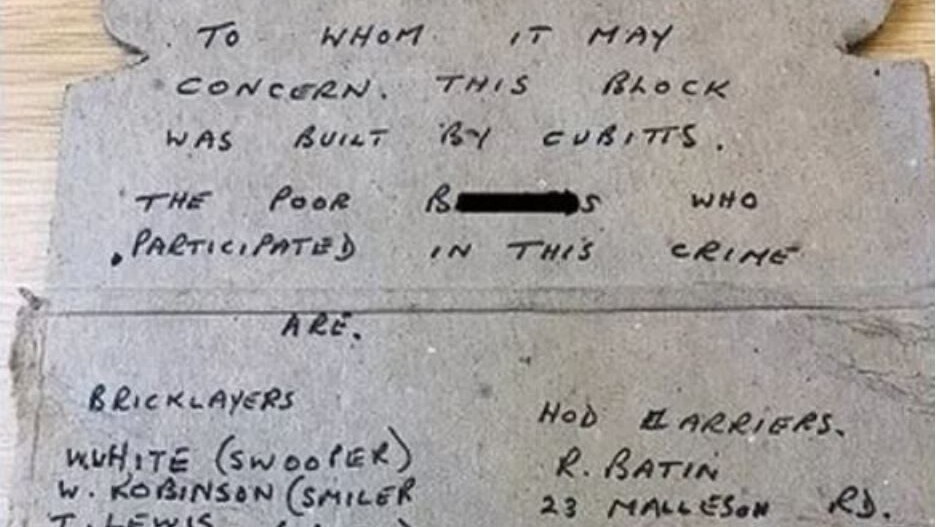 TO WHOM IT MAY
CONCERN. THIS BLOCK
WAS BUILT BY CUBITTS.
THE POOR B S WHO
PARTICIPATED IN THIS CRIME
ARE.
BRICKLAYERS
W.WHITE (SWOOPER)
W. ROBINSON (SMILER
T. LEWIS
HOD CARRIERS.
R. BATIN
23 MALLESON RD.